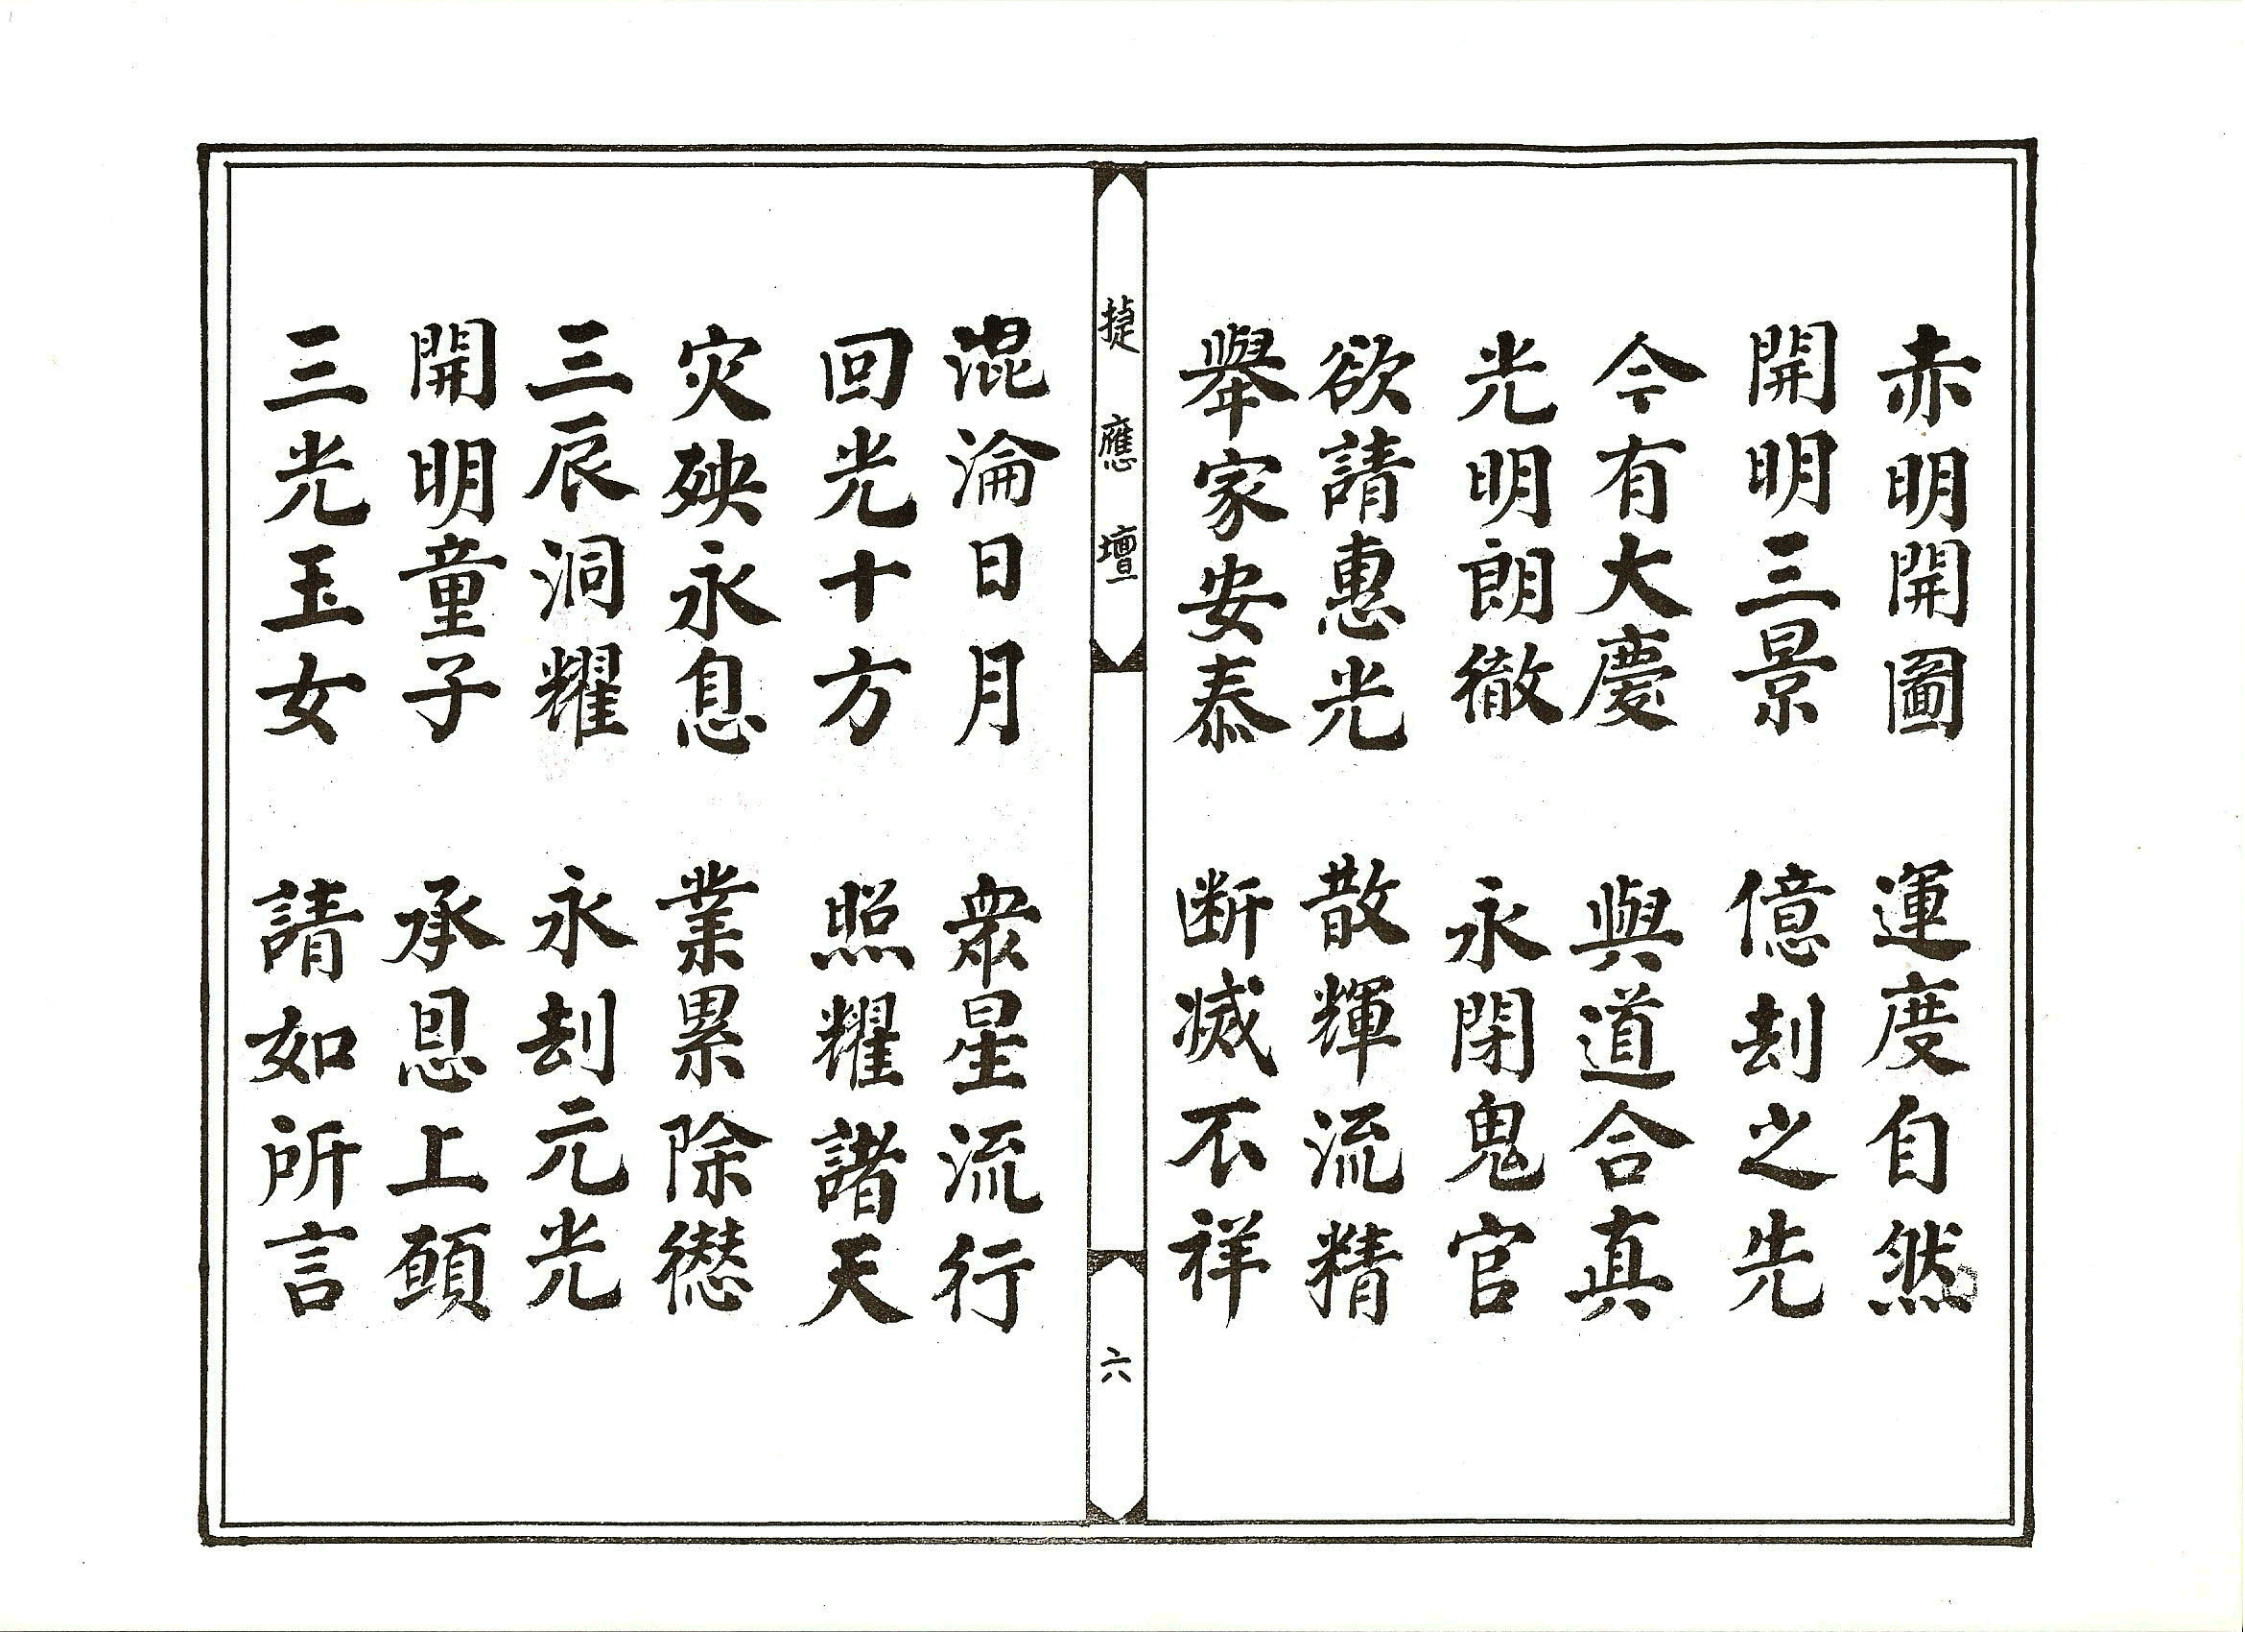 赤明開圖　運度自然
開明三景　億刦之先
今有大慶　與道合真
光明朗徹　永閉鬼官
欲請惠光　散輝流精
舉家安泰　断滅不祥
捷應壇
六
混淪日月　衆星流行
回光十方　照耀諸天
灾殃永息　業累除愆
三辰洞耀　永刦元光
開明童子　承恩上頭
三光玉女　請如所言